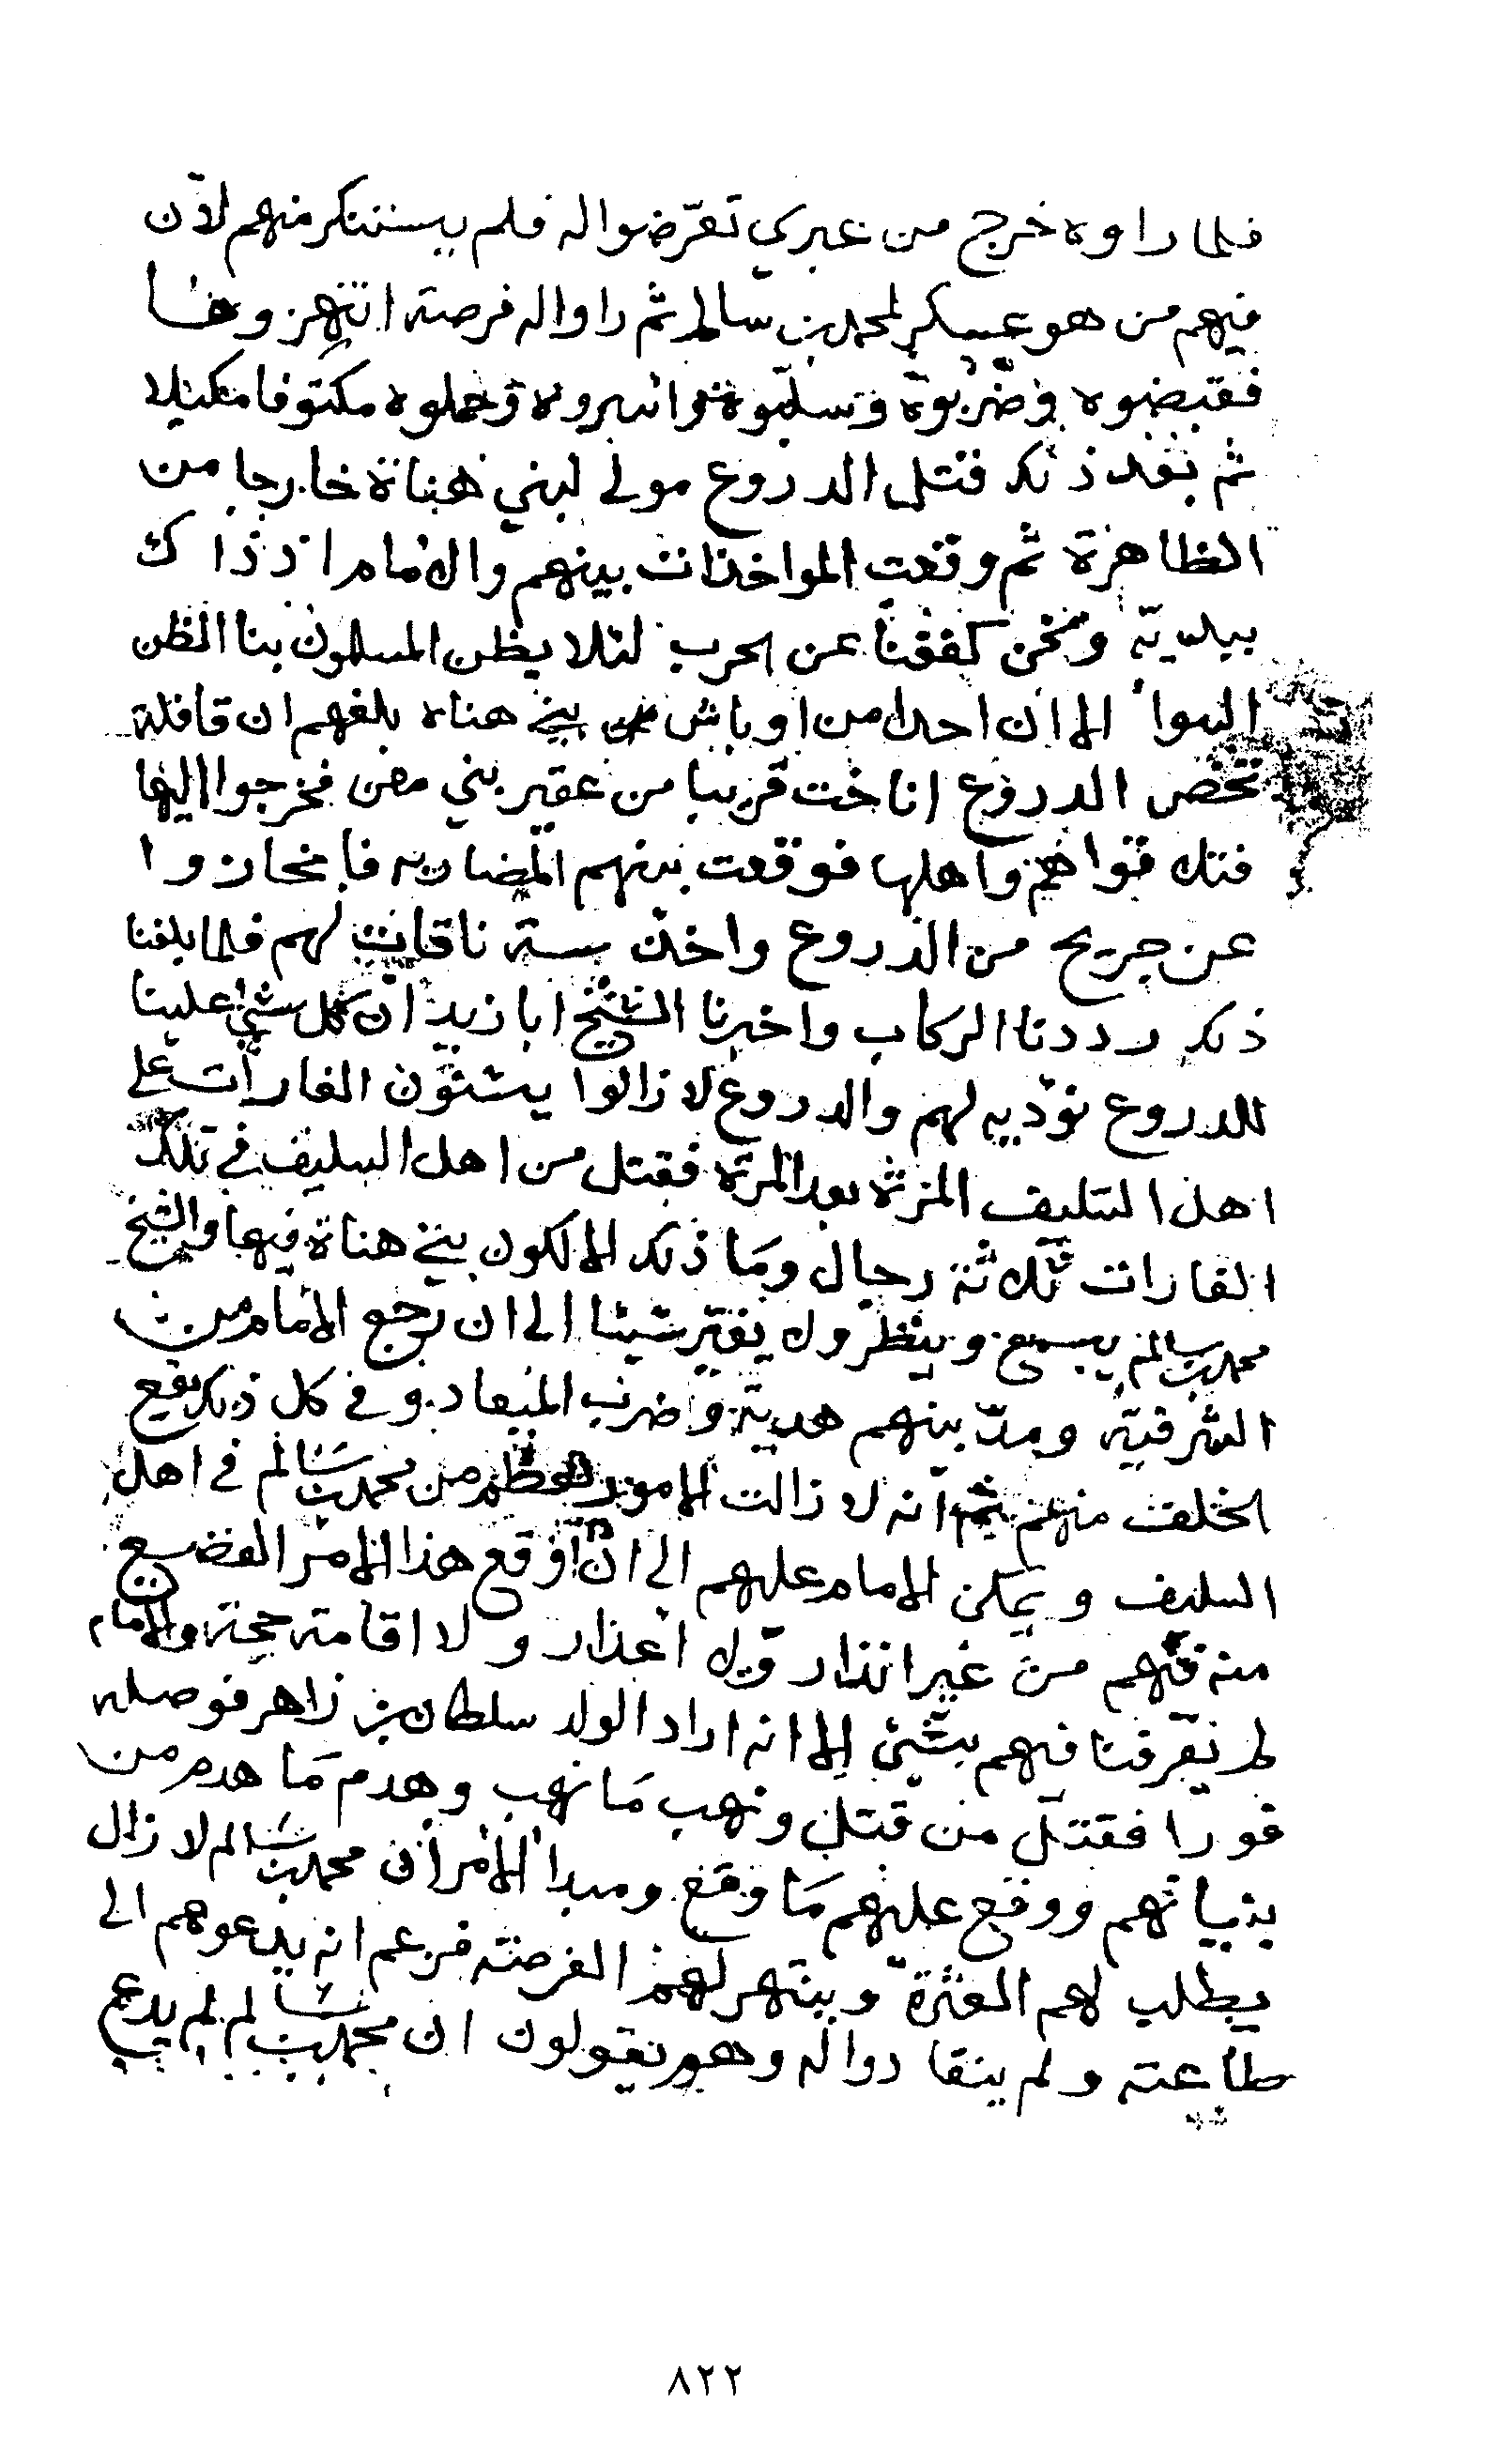 فلما راوه خرج من عبري تعرّضوا له فلم يستنكر منهم لأن
فيهم من هو عسكر لمحمد بن سالم ثم راوا له فرصة انتهزوها
فقبضوه وضربوه وسلبوه واسروه وحملوه مكتوفا مكبلا
ثم بعد ذلك قتل الدروع مولى لبني هناة خارجا من
الظاهرة ثم وقعت المواخذات بينهم والامام اذ ذاك
ببدية ونحن كففنا عن الحرب لئلا يظن المسلمون بنا الظن
السوا الا ان احدا من اوباش بني هناه بلغهم ان قافلة
تخص الدروع اناخت قريبا من عقير بني مفن فخرجوا اليها
واهلها فوقعت بينهم المضاربه فانحازوا
عن جريح من الدروع واخذ ستة ناقات لهم فلما بلغنا
ذلك رددنا الركاب واخبرنا الشيخ ابا زيد ان كل شي علينا
للدروع نوديه لهم والدروع لا زالوا يشنون الغارات على
اهل السليف المرة بعد المرة فقتل من اهل السليف في تلك
الغارات ثلاثة رجال وما ذلك الا لكون بني هناة فيها والشيخ
محمد بن سالم يسمع وينظر ولا يغير شيئا الى ان رجع الامام من
الشرقية ومدّ بينهم هدية وضرب الميعاد وفي كل ذلك يقع
الخلف منهم ثم انه لا زالت الامور من محمد بن سالم في اهل
السليف ويمكن الامام عليهم الى ان أوقع هذا الامر الفضيع
منه فيهم من غير انذار ولا اعذار ولا اقامة حجة والامام
لم يعرفنا فيهم بشئ الا انه اراد الولد سلطان بن زاهر فوصله
فورا فقتل من قتل ونهب ما نهب وهدم ما هدم من
بنياتهم ووقع عليهم ما وقع ومبدا الامر ان محمد بن سالم لا زال
يطلب لهم العثرة وينتهز لهم الفرصة فزعم انه يدعوهم الى
طاعته ولم ينقادوا له وهم يقولون ان محمد بن سالم لم يدع
٨٢٢